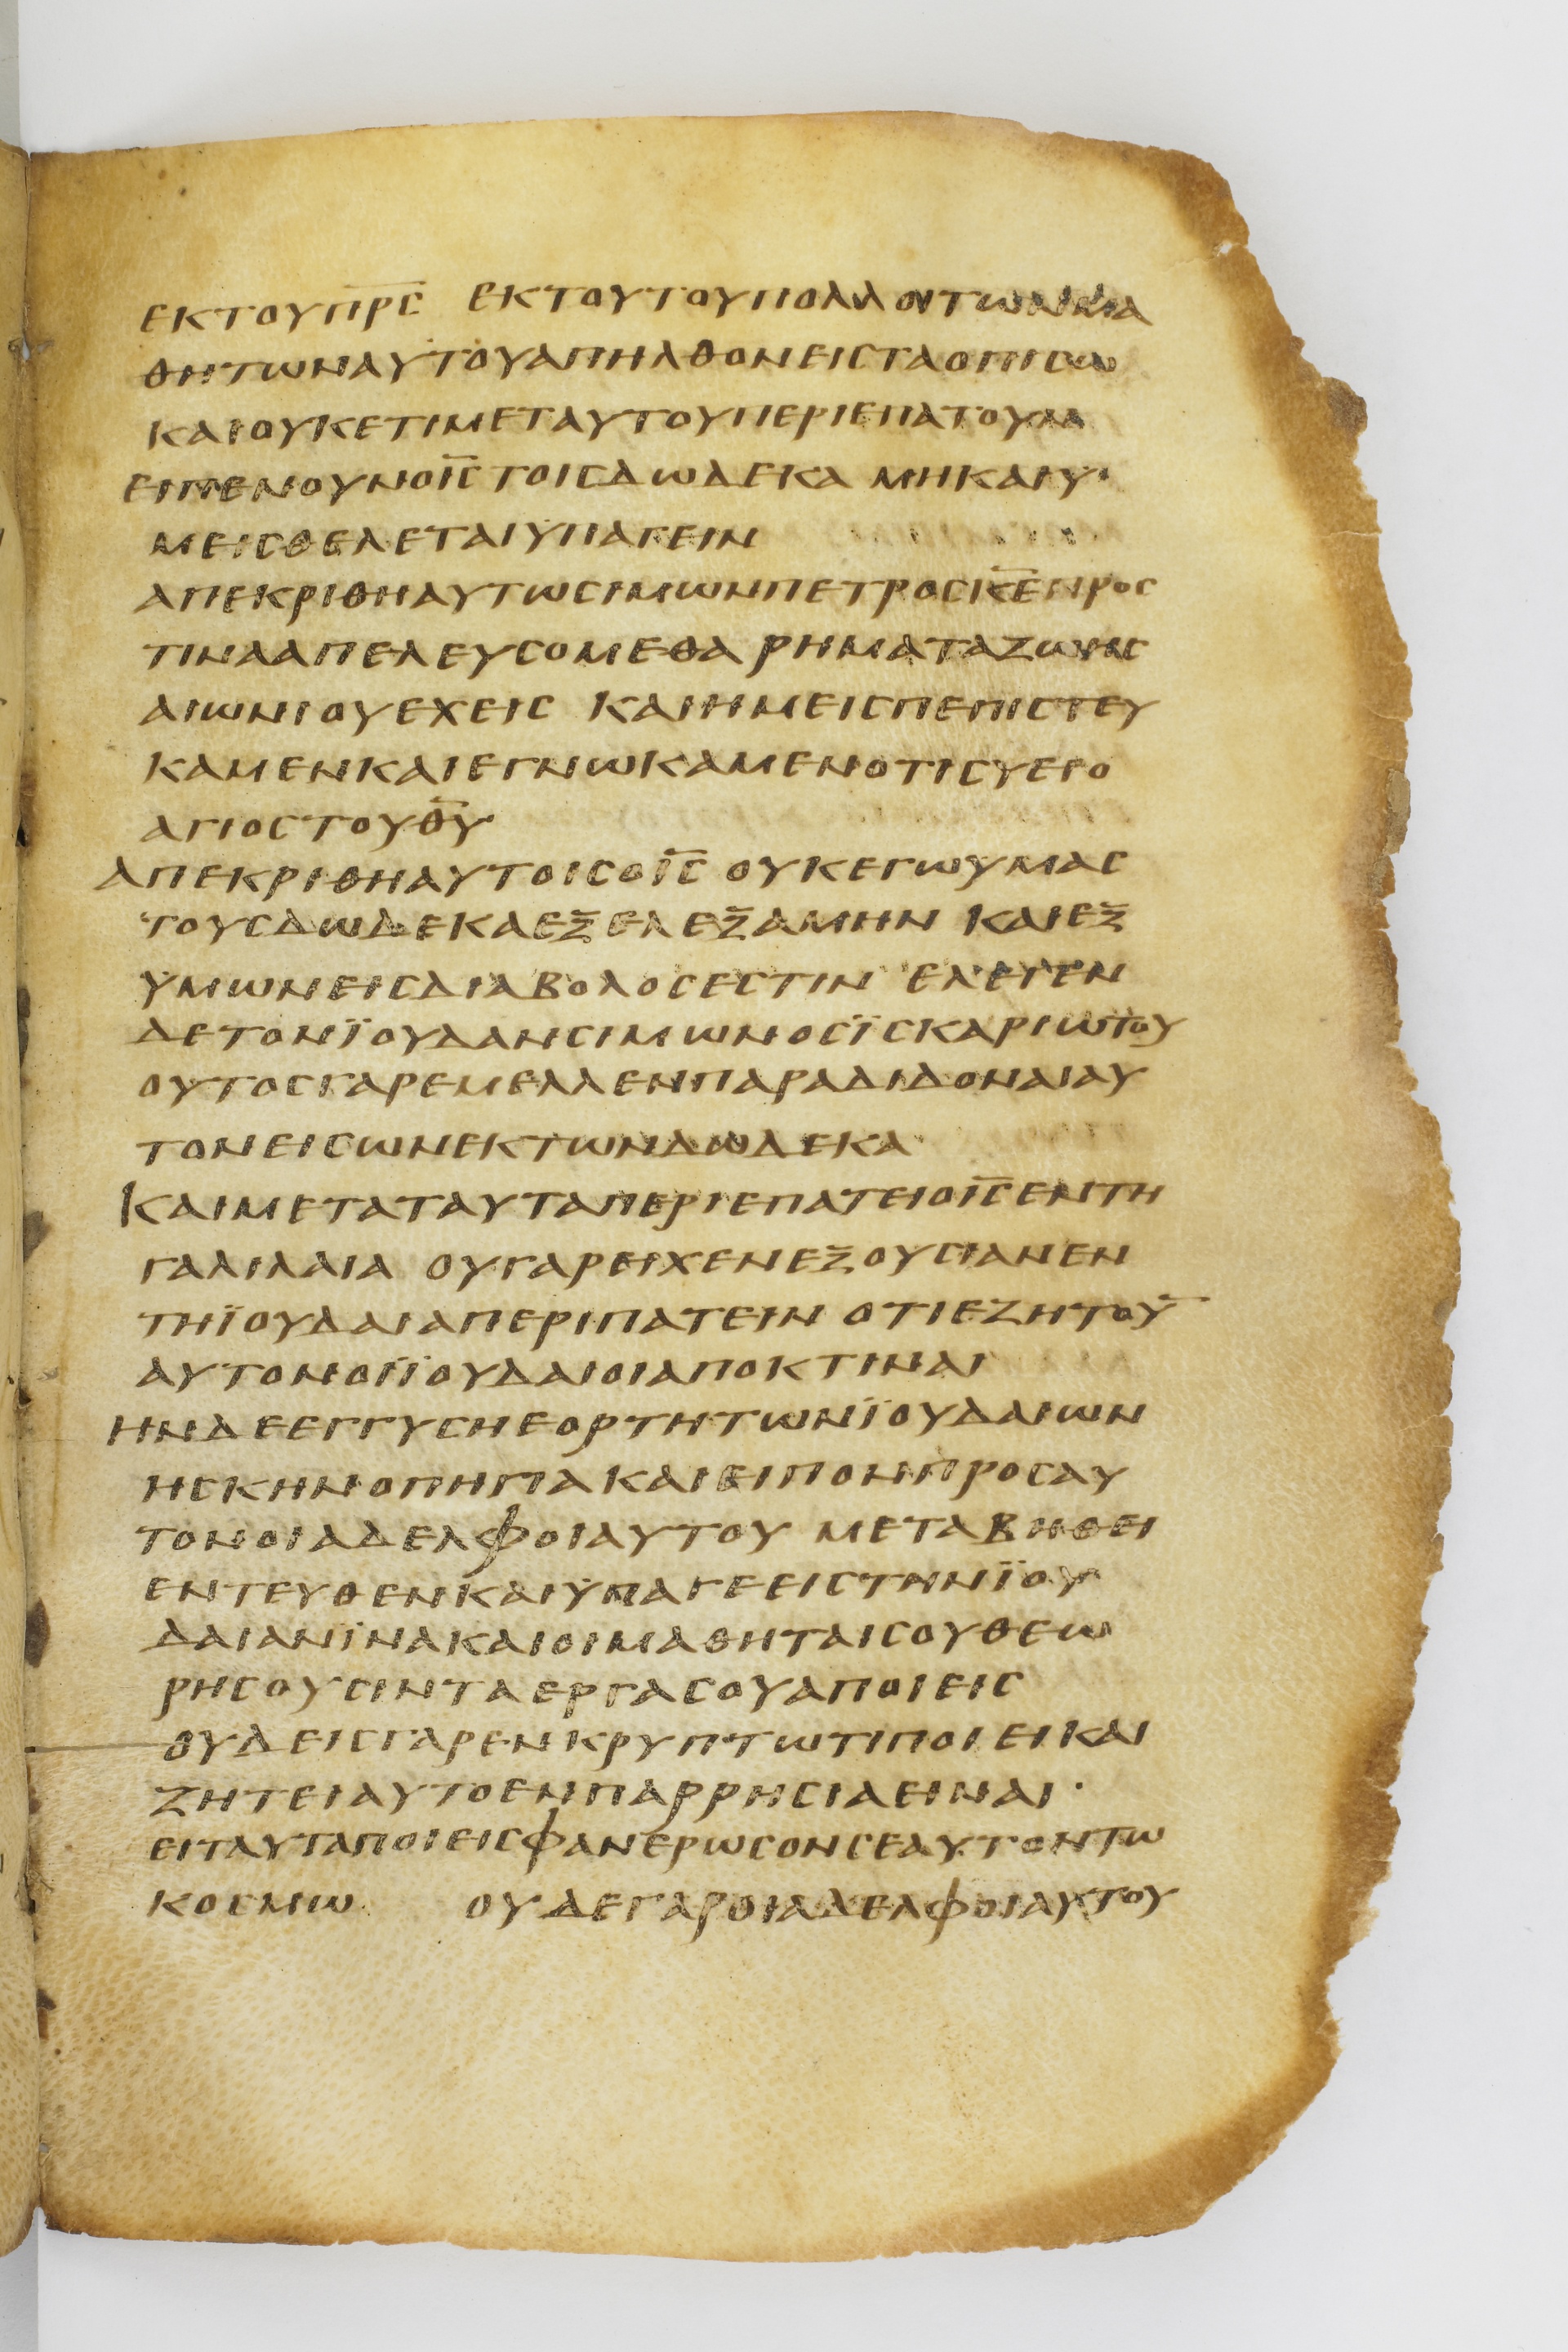 ΕΚΤΟΥΠΡ̅Σ̅ ΕΚΤΟΥΤΟΥΠΟΛΛΟΙΤΩΝΜΑ
ΘΗΤΩΝΑΥΤΟΥΑΠΗΛΘΟΝΕΙΣΤΑΟΠΙΣΩ
ΚΑΙΟΥΚΕΤΙΜΕΤΑΥΤΟΥΠΕΡΙΕΠΑΤΟΥΝ
ΕΙΠΕΝΟΥΝΟΙ̅Σ̅ ΤΟΙΣΔΩΔΕΚΑ ΜΗΚΑΙΥ
ΜΕΙΣΘΕΛΕΤΑΙΫΠΑΓΕΙΝ
ΑΠΕΚΡΙΘΗΑΥΤΩΣΙΜΩΝΠΕΤΡΟΣΚ̅Ε̅ΠΡΟΣ
ΤΙΝΑΑΠΕΛΕΥΣΟΜΕΘΑ ΡΗΜΑΤΑΖΩΗΣ
ΑΙΩΝΙΟΥΕΧΕΙΣ ΚΑΙΗΜΕΙΣΠΕΠΙΣΤΕΥ
ΚΑΜΕΝΚΑΙΕΓΝΩΚΑΜΕΝΟΤΙΣΥΕΙΟ
ΑΓΙΟΣΤΟΥΘ̅Υ̅
ΑΠΕΚΡΙΘΗΑΥΤΟΙΣΟΙ̅Σ̅ ΟΥΚΕΓΩΥΜΑΣ
ΤΟΥΣΔΩΔΕΚΑΕΞΕΛΕΞΑΜΗΝ ΚΑΙΕΞ
ΫΜΩΝΕΙΣΔΙΑΒΟΛΟΣΕΣΤΙΝ ΕΛΕΓΕΝ
ΔΕΤΟΝΪΟΥΔΑΝΣΙΜΩΝΟΣΪΣΚΑΡΙΩΤΟΥ
ΟΥΤΟΣΓΑΡΕΜΕΛΛΕΝΠΑΡΑΔΙΔΟΝΑΙΑΥ
ΤΟΝΕΙΣΩΝΕΚΤΩΝΔΩΔΕΚΑ
ΚΑΙΜΕΤΑΤΑΥΤΑΠΕΡΙΕΠΑΤΕΙΟΙ̅Σ̅ΕΝΤΗ
ΓΑΛΙΛΑΙΑ ΟΥΓΑΡΕΙΧΕΝΕΞΟΥΣΙΑΝΕΝ
ΤΗΪΟΥΔΑΙΑΠΕΡΙΠΑΤΕΙΝ ΟΤΙΕΖΗΤΟΥ̅
ΑΥΤΟΝΟΙΪΟΥΔΑΙΟΙΑΠΟΚΤΙΝΑΙ
ΗΝΔΕΕΓΓΥΣΗΕΟΡΤΗΤΩΝΪΟΥΔΑΙΩΝ
ΗΣΚΗΝΟΠΗΓΙΑΚΑΙΕΙΠΟΝΠΡΟΣΑΥ
ΤΟΝΟΙΑΔΕΛΦΟΙΑΥΤΟΥ ΜΕΤΑΒΗΘΕΙ
ΕΝΤΕΥΘΕΝΚΑΙΫΠΑΓΕΕΙΣΤΗΝΪΟΥ
ΔΑΙΑΝΪΝΑΚΑΙΟΙΜΑΘΗΤΑΙΣΟΥΘΕΩ
ΡΗΣΟΥΣΙΝΤΑΕΡΓΑΣΟΥΑΠΟΙΕΙΣ
ΟΥΔΕΙΣΓΑΡΕΝΚΡΥΠΤΩΤΙΠΟΙΕΙΚΑΙ
ΖΗΤΕΙΑΥΤΟΕΝΠΑΡΡΗΣΙΑΕΙΝΑΙ·
ΕΙΤΑΥΤΑΠΟΙΕΙΣΦΑΝΕΡΩΣΟΝΣΕΑΥΤΟΝΤΩ
ΚΟΣΜΩ ΟΥΔΕΓΑΡΟΙΑΔΕΛΦΟΙΑΥΤΟΥ